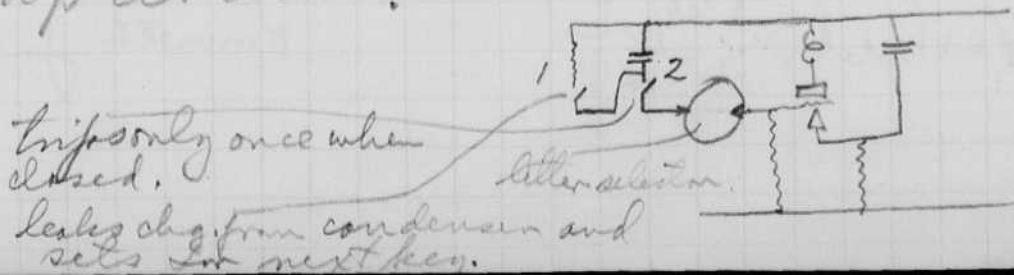 1 2
trips only once when
closed.
letter selector.
leaks chg. from condenser and
sets for next key.